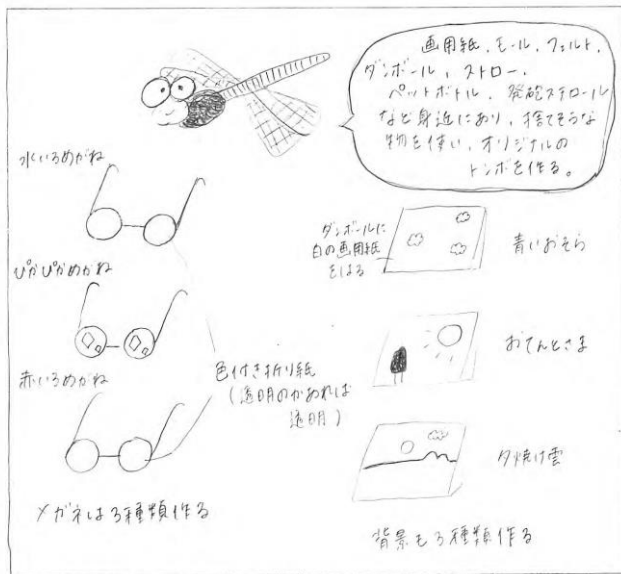 画用紙、モール、フェルト、
ダンボール、ストロー、
ペットボトル、発砲スチロール
など身近にあり、捨てそうな
物を使い、オリジナルの
トンボを作る。
水いろめがね
ぴかぴかめがね
赤いろめがね
色付き折り紙
(透明のがあれば
透明)
メガネは3種類作る
ダンボールに
白の画用紙
をはる
青いおそら
おてんとさま
夕焼け雲
背景も3種類作る